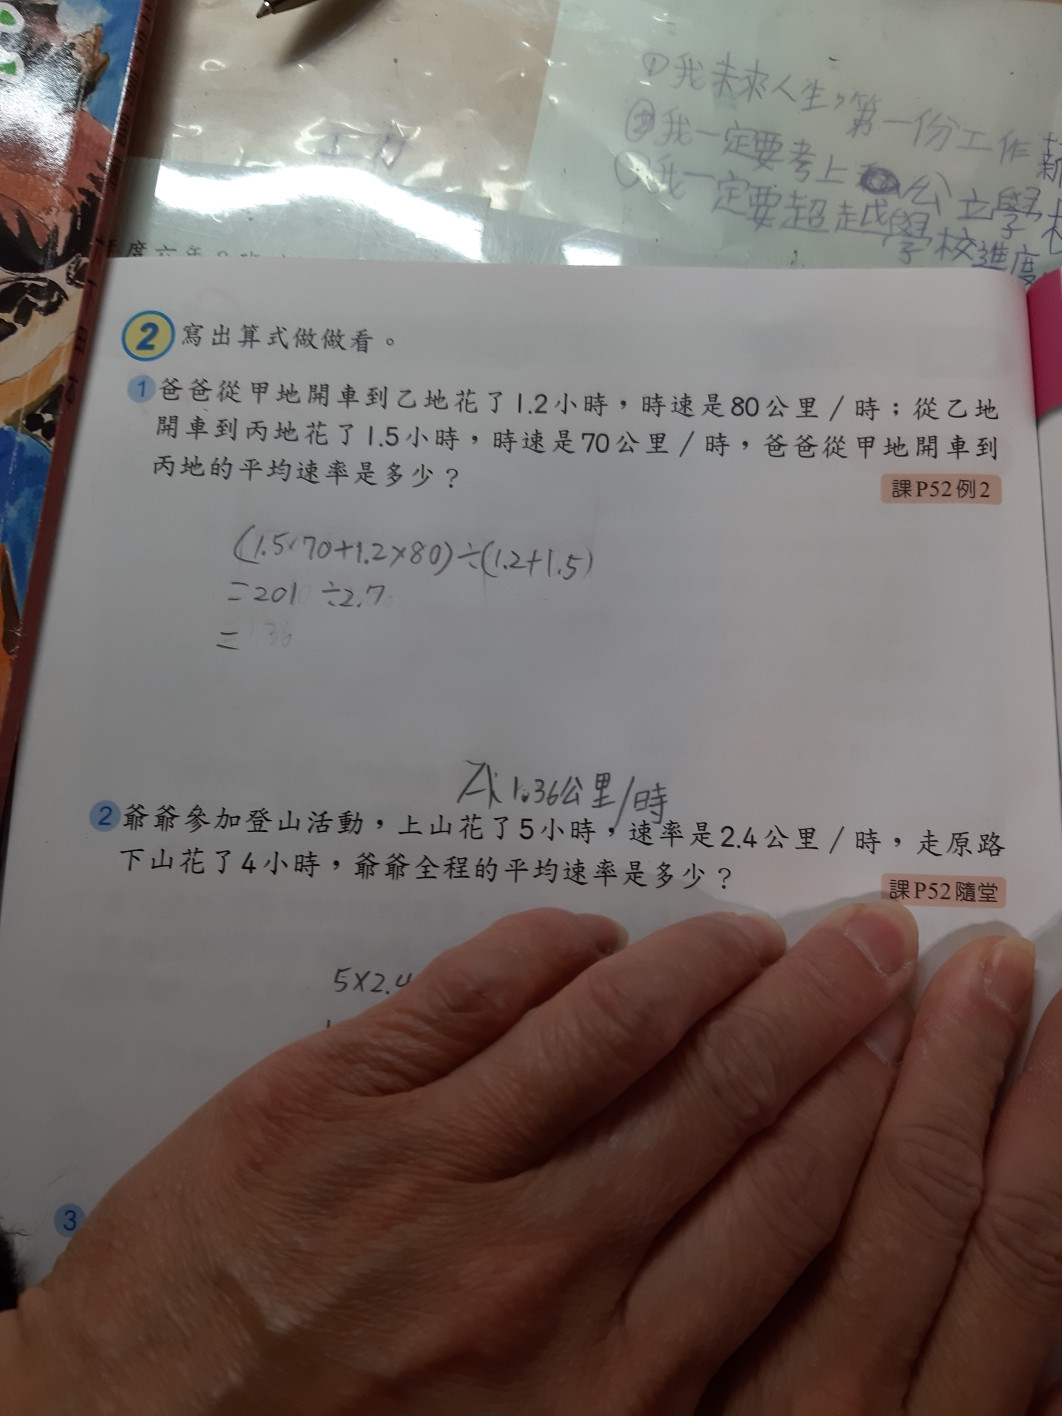 ①我未來人生,第一份工作薪
②我一定要考上公立學校
我一定要超越學校進度
2 寫出算式做做看。
1 爸爸從甲地開車到乙地花了1.2小時,時速是80公里/時;從乙地
開車到丙地花了1.5小時,時速是70公里/時,爸爸從甲地開車到
丙地的平均速率是多少?
課P52例2
(1.5×70+1.2×80)÷(1.2+1.5)
=201 ÷2.7
=136
A:1.36公里/時
2 爺爺參加登山活動,上山花了5小時,速率是2.4公里/時,走原路
下山花了4小時,爺爺全程的平均速率是多少?
課P52隨堂
5×2.4
3